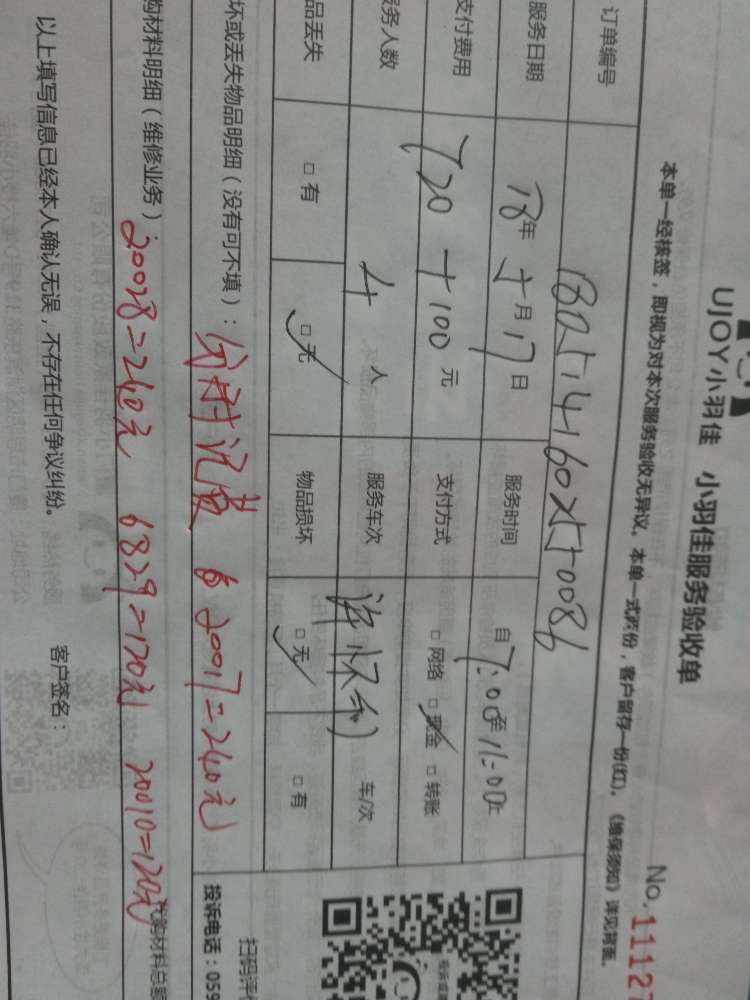 UJOY小羽佳 小羽佳服务验收单
No. 11127
本单一经核签，即视为对本次服务验收无异议。本单一式两份，客户留存一份(红)。《维保须知》详见背面。
订单编号
服务日期 18年 月17日 服务时间 自7:00至11:00止
支付费用 720+100元 支付方式 □网络 □现金 □转账
服务人数 4人 服务车次 车/次
品丢失 □有 □无 物品损坏 □无 □有
坏或丢失物品明细（没有可不填）： 20017=240元
购材料明细（维修业务）： 20028=240元 6829=120元 20010=120元 代购材料总额
以上填写信息已经本人确认无误，不存在任何争议纠纷。 客户签名：
扫码评价
投诉电话：059